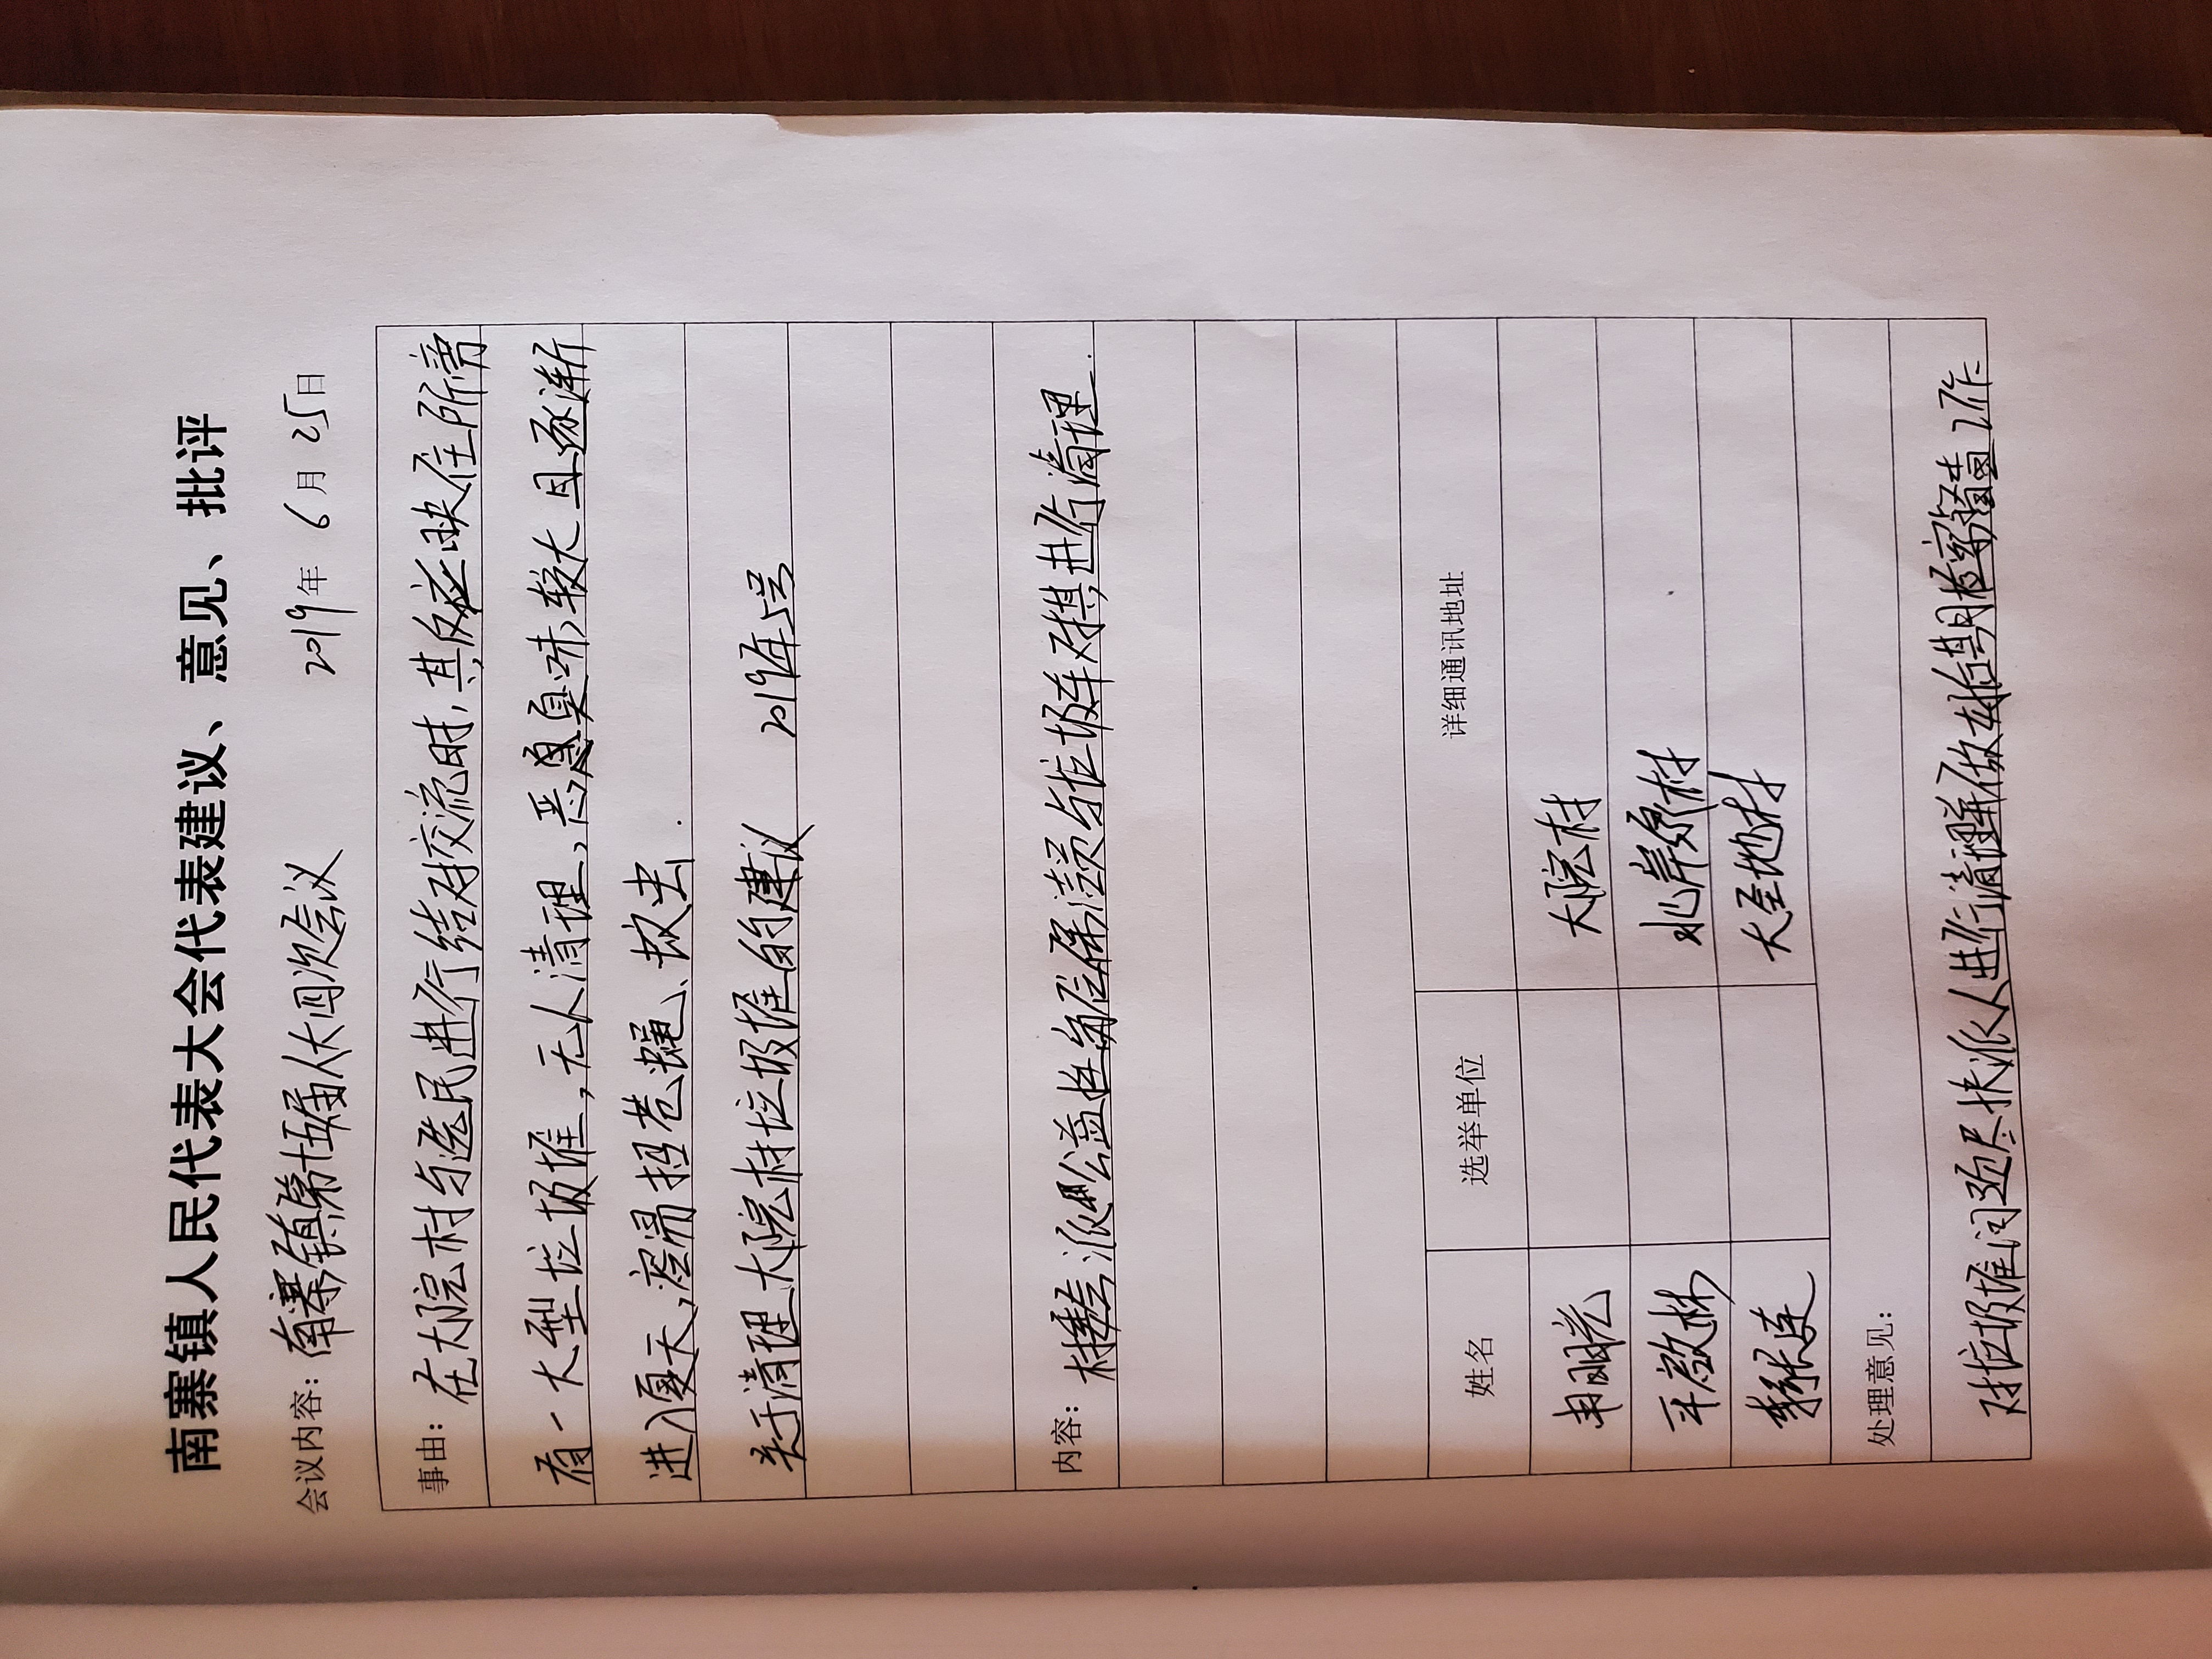 南寨镇人民代表大会代表建议、意见、批评
会议内容：南寨镇第十五届人大四次会议 2019年 6月 25日
事由：在大院村与选民进行结对交流时，其反应映住所旁
有一大型垃圾堆，无人清理，恶臭味较大且逐渐
进入夏天，容易招苍蝇、蚊虫.
关于清理大院村垃圾堆的建议 2019年5号
内容：村委会派公益性岗位保洁员与垃圾车对其进行清理.
姓名 选举单位 详细通讯地址
大院村
北岸源村
大圣地村
处理意见：
对垃圾堆问题尽快派人进行清理并做好后期检察督查工作